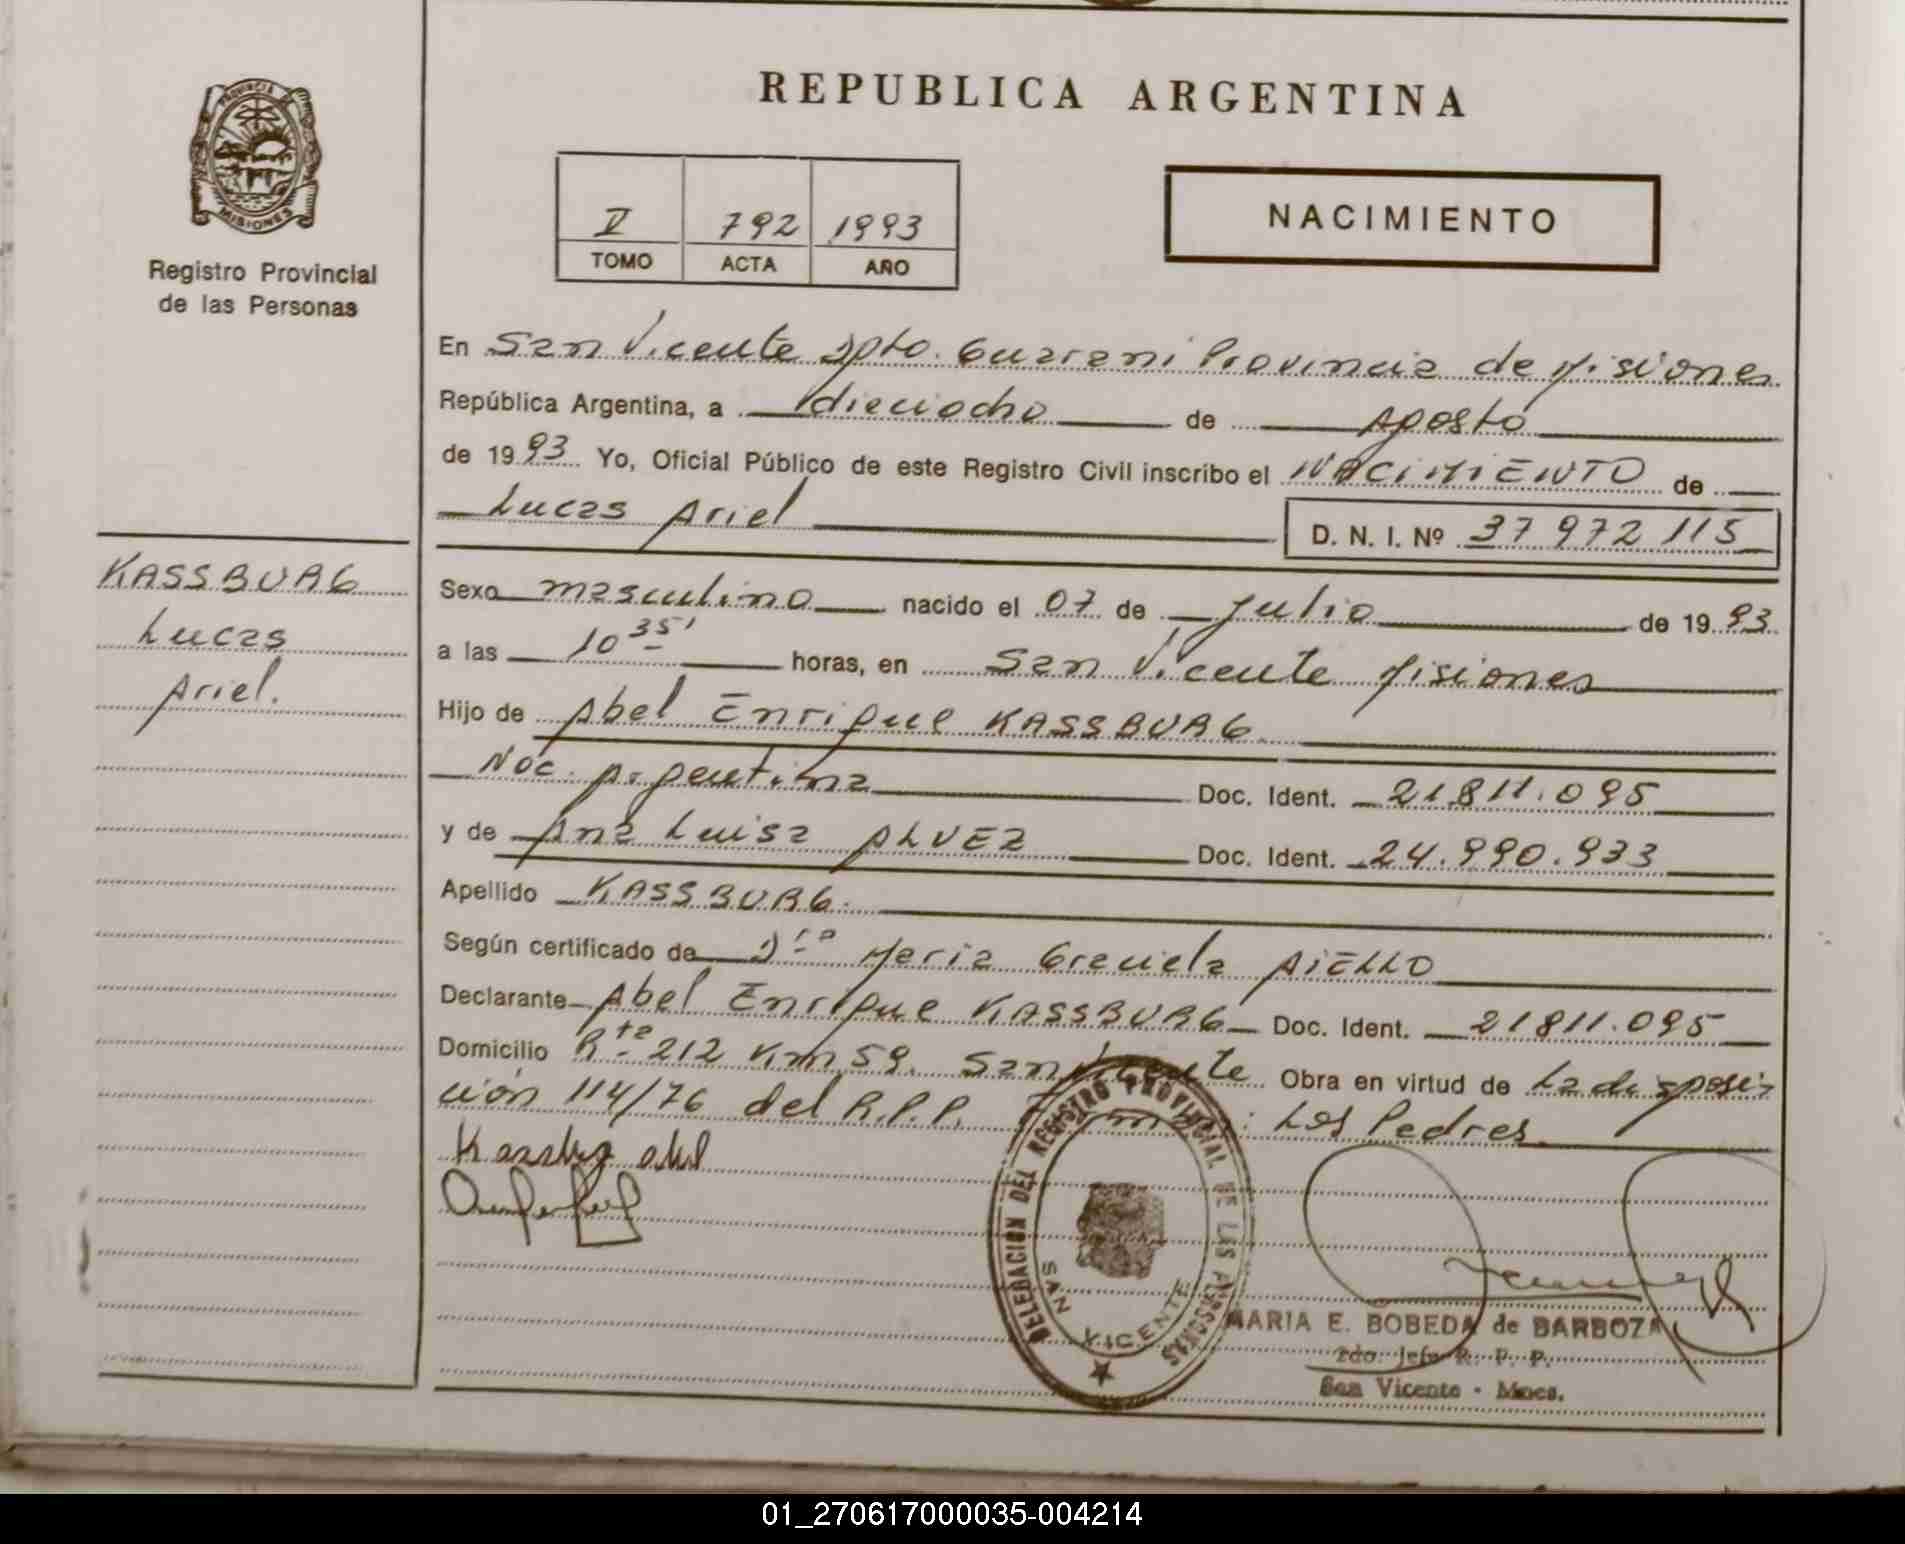 PROVINCIA DE
MISIONES
Registro Provincial
de las Personas
REPUBLICA ARGENTINA
V 792 1993
TOMO ACTA AÑO
NACIMIENTO
En San Vicente Dpto. Guarani Provincia de Misiones
República Argentina, a dieciocho de Agosto
de 1993. Yo, Oficial Público de este Registro Civil inscribo el NACIMIENTO de
Lucas Ariel
D. N. I. Nº 37 972 115
KASSBURG
Lucas
Ariel.
Sexo masculino nacido el 07 de Julio de 1993.
a las 10 35' horas, en San Vicente Misiones
Hijo de Abel Enrique KASSBURG
Nac. Argentina Doc. Ident. 21.811.095
y de Ana Luisa ALVEZ Doc. Ident. 24.990.933
Apellido KASSBURG.
Según certificado de Dra Maria Graciela AIELLO
Declarante Abel Enrique KASSBURG Doc. Ident. 21811.095
Domicilio Rta 212 Km 59. San Vicente Obra en virtud de La disposi-
ción 114/76 del R.P.P. : Los Padres
DELEGACION DEL REGISTRO PROVINCIAL DE LAS PERSONAS
SAN VICENTE
MARIA E. BOBEDA de BARBOZA
2do. Jefe R. P. P.
San Vicente - Mnes.
01_270617000035-004214